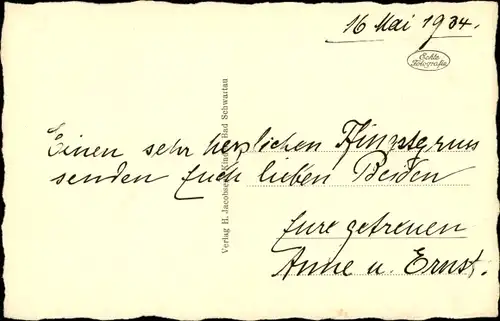 16 Mai 1934.
Echte
Fotografie
Einen sehr herzlichen Pfingstgruss
senden Euch lieben Beiden
Eure getreuen
Anne u. Ernst.
Verlag H. Jacobsen, Bad Schwartau